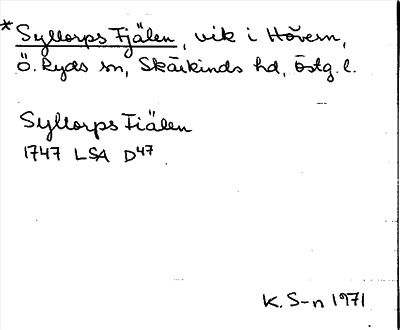 *Syllorps Fjälen, vik i Hövern,
Ö. Ryds sn, Skärkinds hd, Östg. l.
Syllorps Fiälen
1747 LSA D47
K. S-n 1971